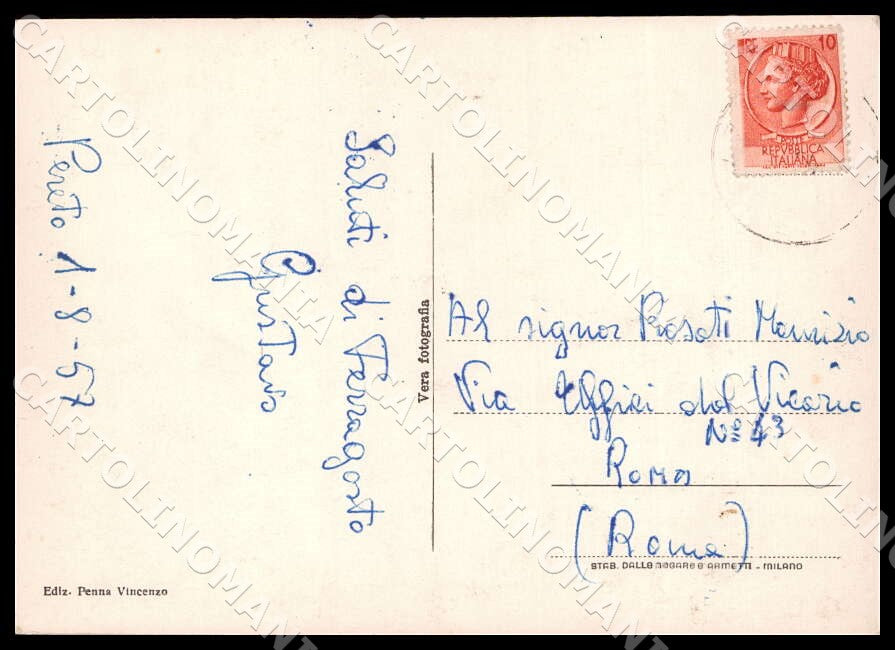 Pereto 1-8-57
Saluti di Ferragosto
Gustavo
Vera fotografia
Ediz. Penna Vincenzo
10
POSTE
REPVBBLICA
ITALIANA
Al signor Rosati Maurizio
Via Uffici del Vicario
Nº 43
Roma
(Roma)
STAB. DALLE NOGARE E ARMETTI - MILANO
CARTOLINOMANIA